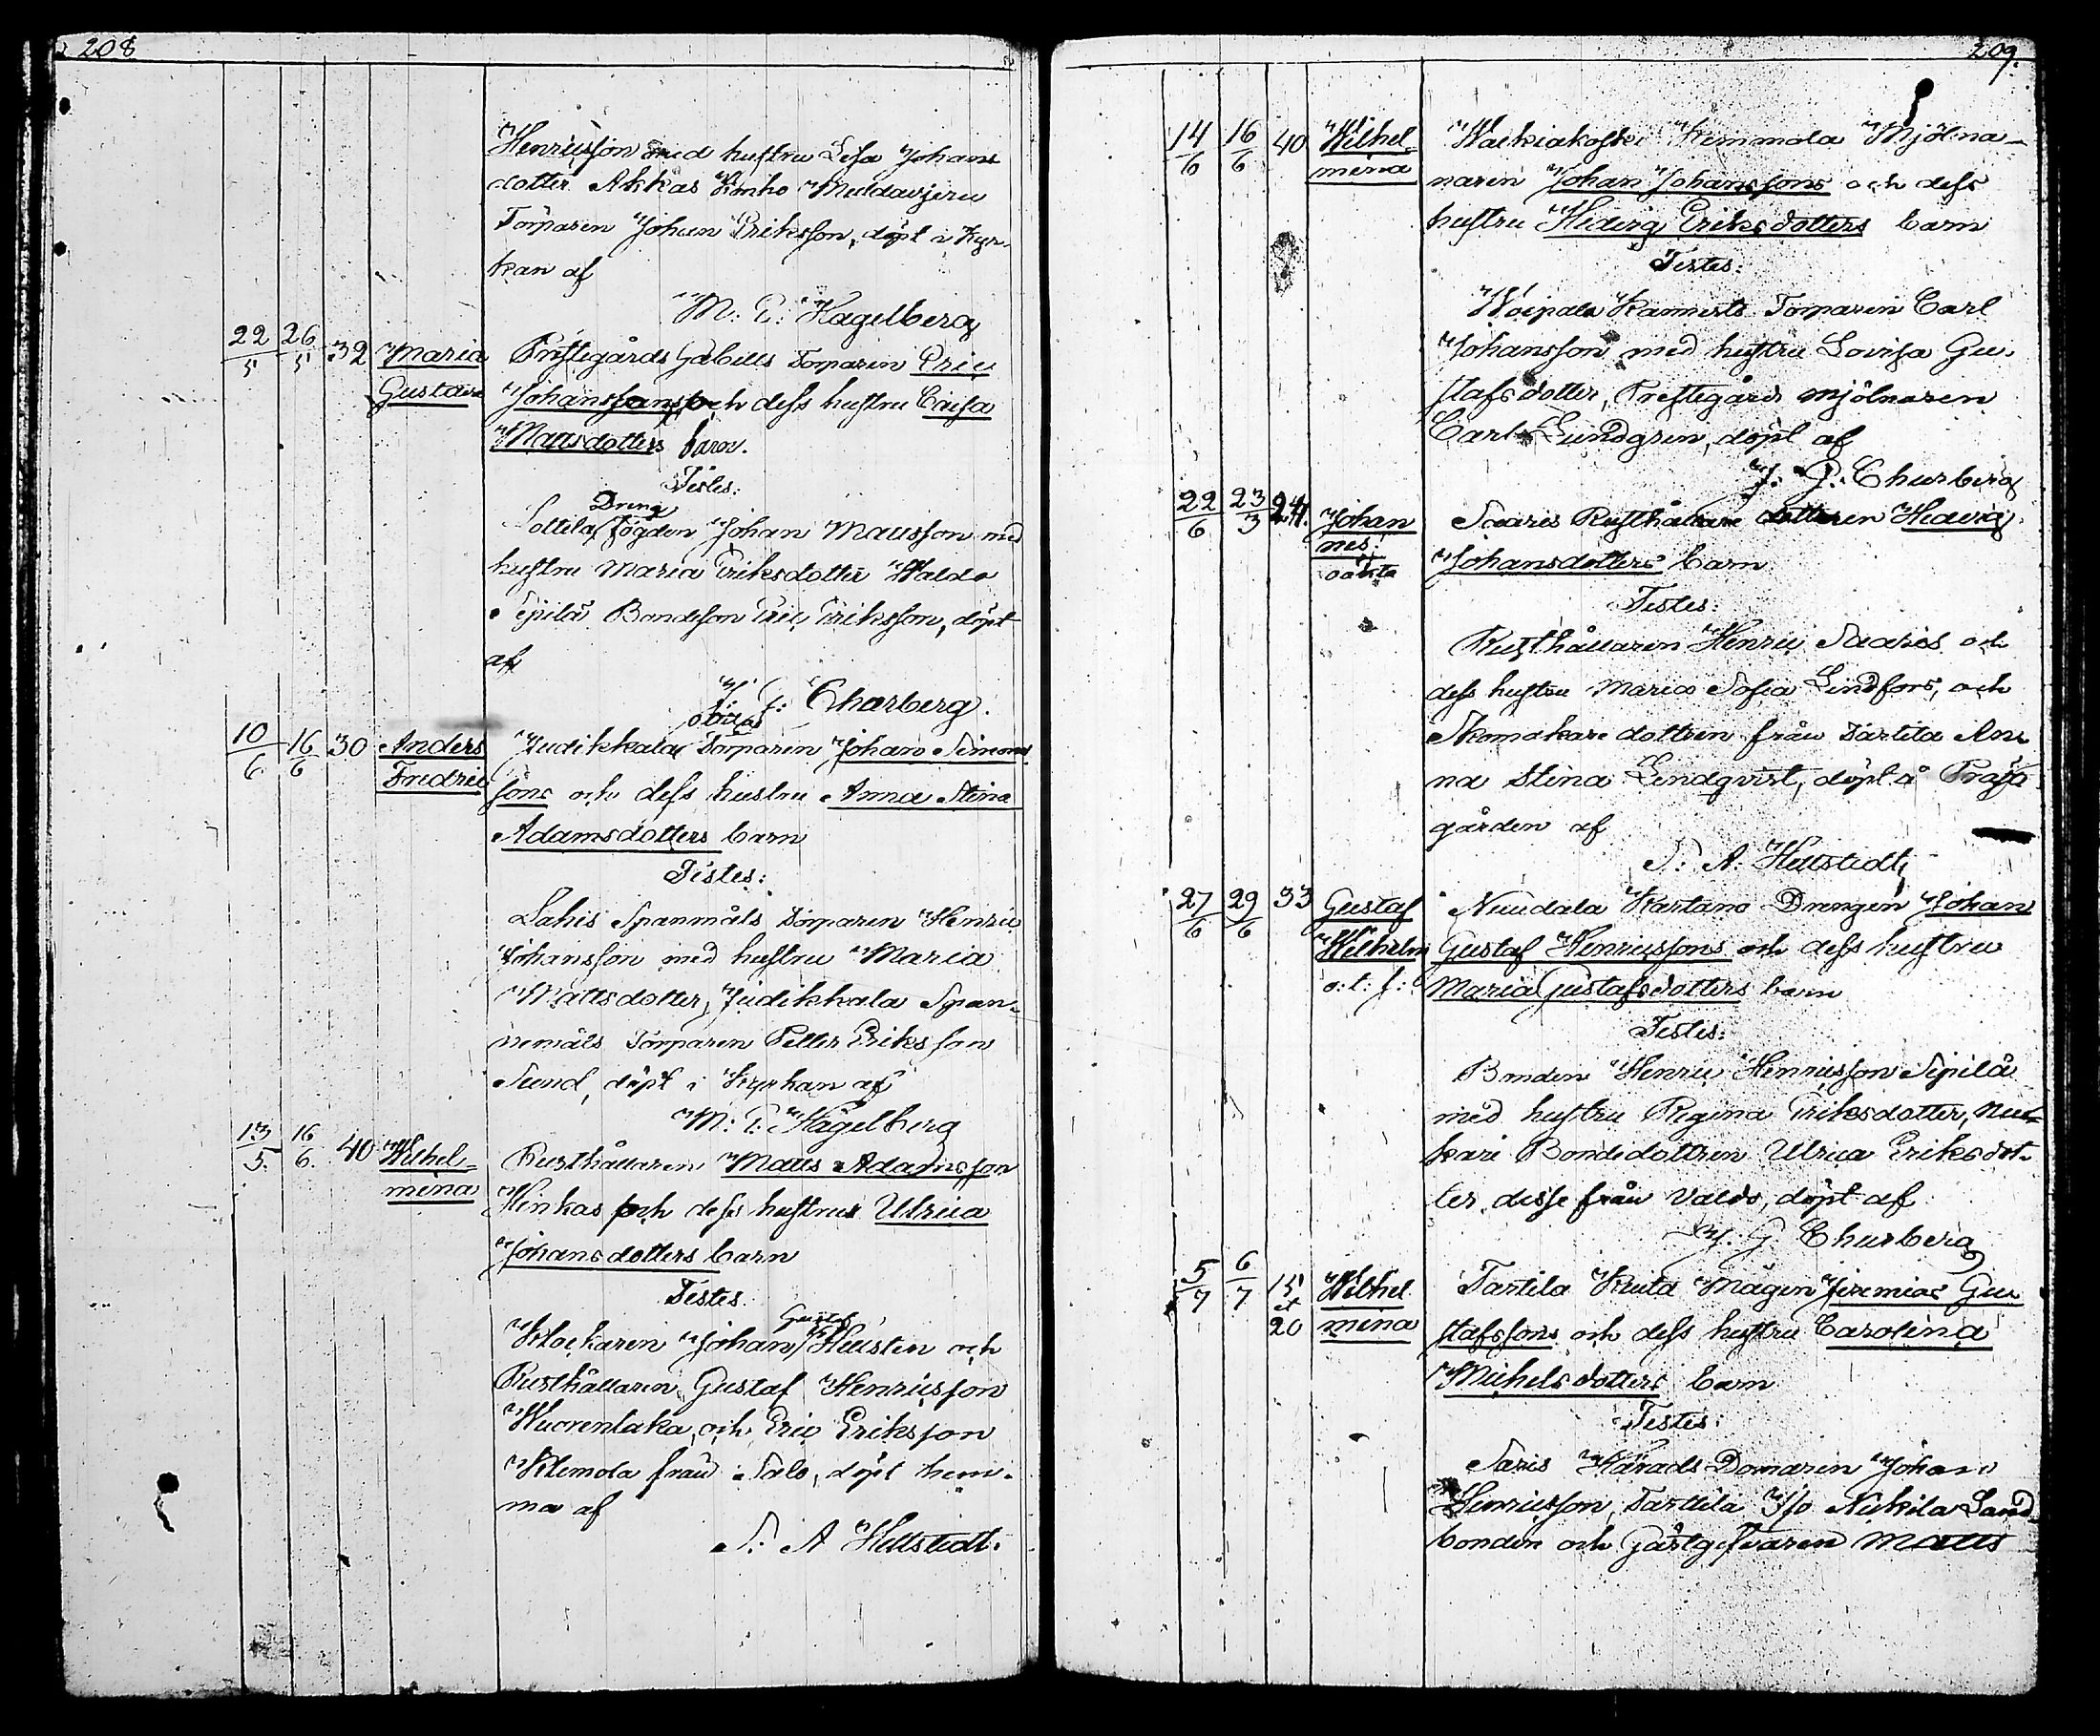 208
Henricsson med hustru Lisa Johans
dotter Akkas Muldavjeru
Torparen Johan Eriksson, döpt i Kyr-
kan af
M: E: Hagelberg
22/5 26/5 32 Maria Prestegårds Torparen Eric
Gustava Johanssons och dess hustru Caisa
Mattsdotters barn.
Testes:
Dreng
Sottila Johan Mattsson med
hustru Maria Eriksdotter Waldo
Sipilä Bondeson Eric Eriksson, döpt
af
J: G: Churberg.
10/6 16/6 30 Anders Judikkala Torparen Johan Simons
Fredric sons och dess hustru Anna Stina
Adamsdotters barn
Testes:
Lahis Spanmåls Torparen Henric
Johansson med hustru Maria
Mattsdotter, Judikkala Span-
nemåls Torparen Petter Eriksson
Sund, döpt i Kyrkan af
M: E: Hagelberg
13/5 16/6 40 Wilhel- Rusthållaren Matts Adamsson
mina Hinkas och dess hustru Ulrica
Johansdotters barn
Testes.
Gustaf
Klockaren Johan Hellsten och
Rusthållaren Gustaf Henricsson
Wuorenlaka, och Eric Eriksson
Klemola från Salo, döpt hem-
ma af
S: A Hellstedt.
209.
14/6 16/6 40 Wilhel- Waikiakoski Kemmola Mjölna-
mina naren Johan Johanssons och dess
hustru Hedvig Eriksdotters barn
Testes:
Woipala Torparen Carl
Johansson med hustru Lovisa Gu-
stafsdotter, Prestegårds mjölnaren
Carl Lundgren, döpt af
J: G: Churberg
22/6 23/3 24. Johan Saaris Rusthållare dottren Hedvig
nes: Johansdotters barn
oäkta
Testes:
Rusthållaren Henric Saaris och
dess hustru Maria Sofia Lindfors, och
Skomakare dottren från Tartila An
na Stina Lindqvist, döpt å Prest
gården af
S: A. Hellstedt
27/6 29/6 33 Gustaf Nuudala Kartano Drengen Johan
Wilhelm Gustaf Henricssons och dess hustru
o: t: f: Maria Gustafsdotters barn
Testes:
Bonden Henric Henricsson Sipilä
med hustru Regina Eriksdotter, Nuu-
kari Bondedottren Ulrica Eriksdot-
ter, disse från Valdo, döpt af
J. G Churberg
5/7 6/7 15 et 20 Wilhel Tartila Knuta Mågen Jeremias Gu
mina stafssons och dess hustru Carolina
Michelsdotters barn
Testes:
Saris Härads Domaren Johan
Henricsson, Tarttila Nickila Land
bonden och Gästgifvaren Matts